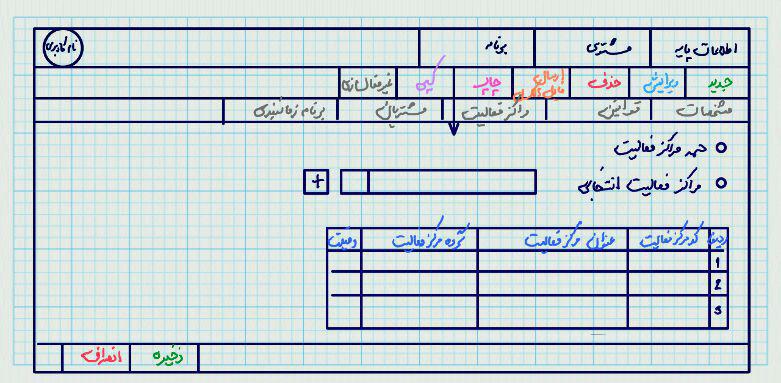 اطلاعات پایه مشتری برنامه نام کاربری
جدید ویرایش حذف ارسال فایل چاپ کپی غیرفعالسازی
مشخصات قوانین مراکز فعالیت مشتریان برنامه زمانبندی
همه مراکز فعالیت
مراکز فعالیت انتخابی +
ردیف کد مرکز فعالیت عنوان مرکز فعالیت گروه مرکز فعالیت وضعیت
1
2
3
ذخیره انصراف